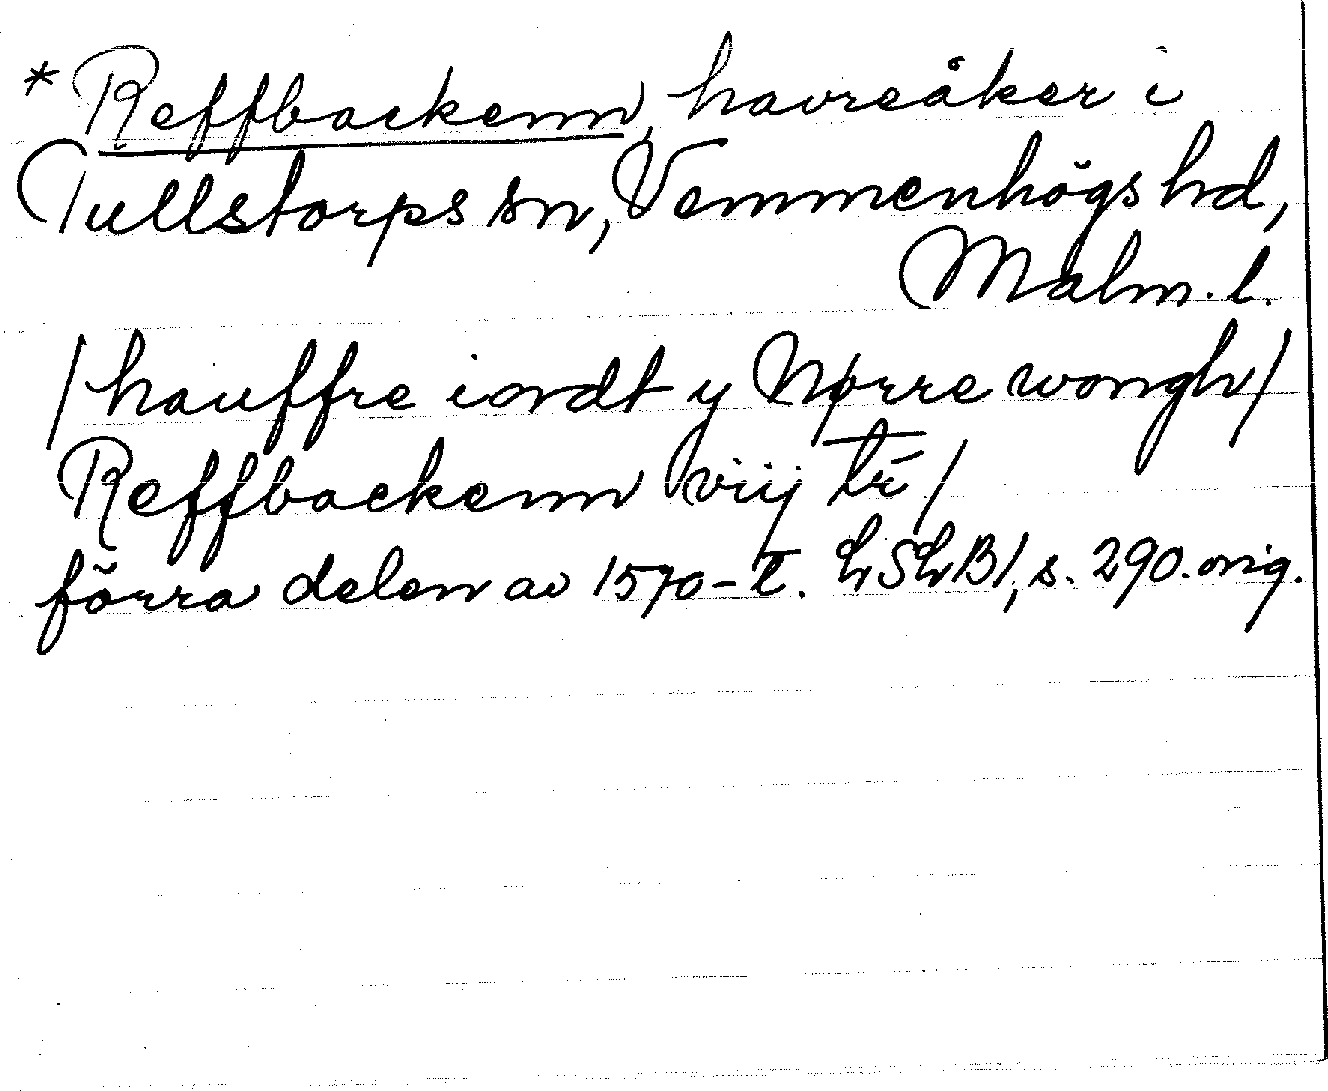 * Reffbackenn, havreåker i
Tullstorps sn, Vemmenhögs hd,
Malm. l.
/hauffre iordt y Nørre wongh/
Reffbackenn viij tr̄/
förra delen av 1570-t. LSLB1, s. 290. orig.